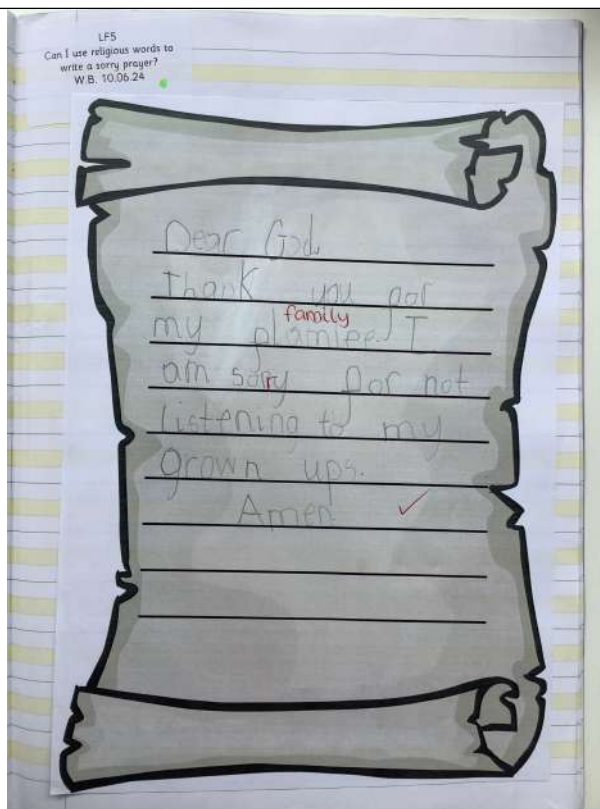 LF5
Can I use religious words to
write a sorry prayer?
W.B. 10.06.24
Dear God
Thank you for
family
my flamlee. I
am sorry for not
listening to my
grown ups.
Amen